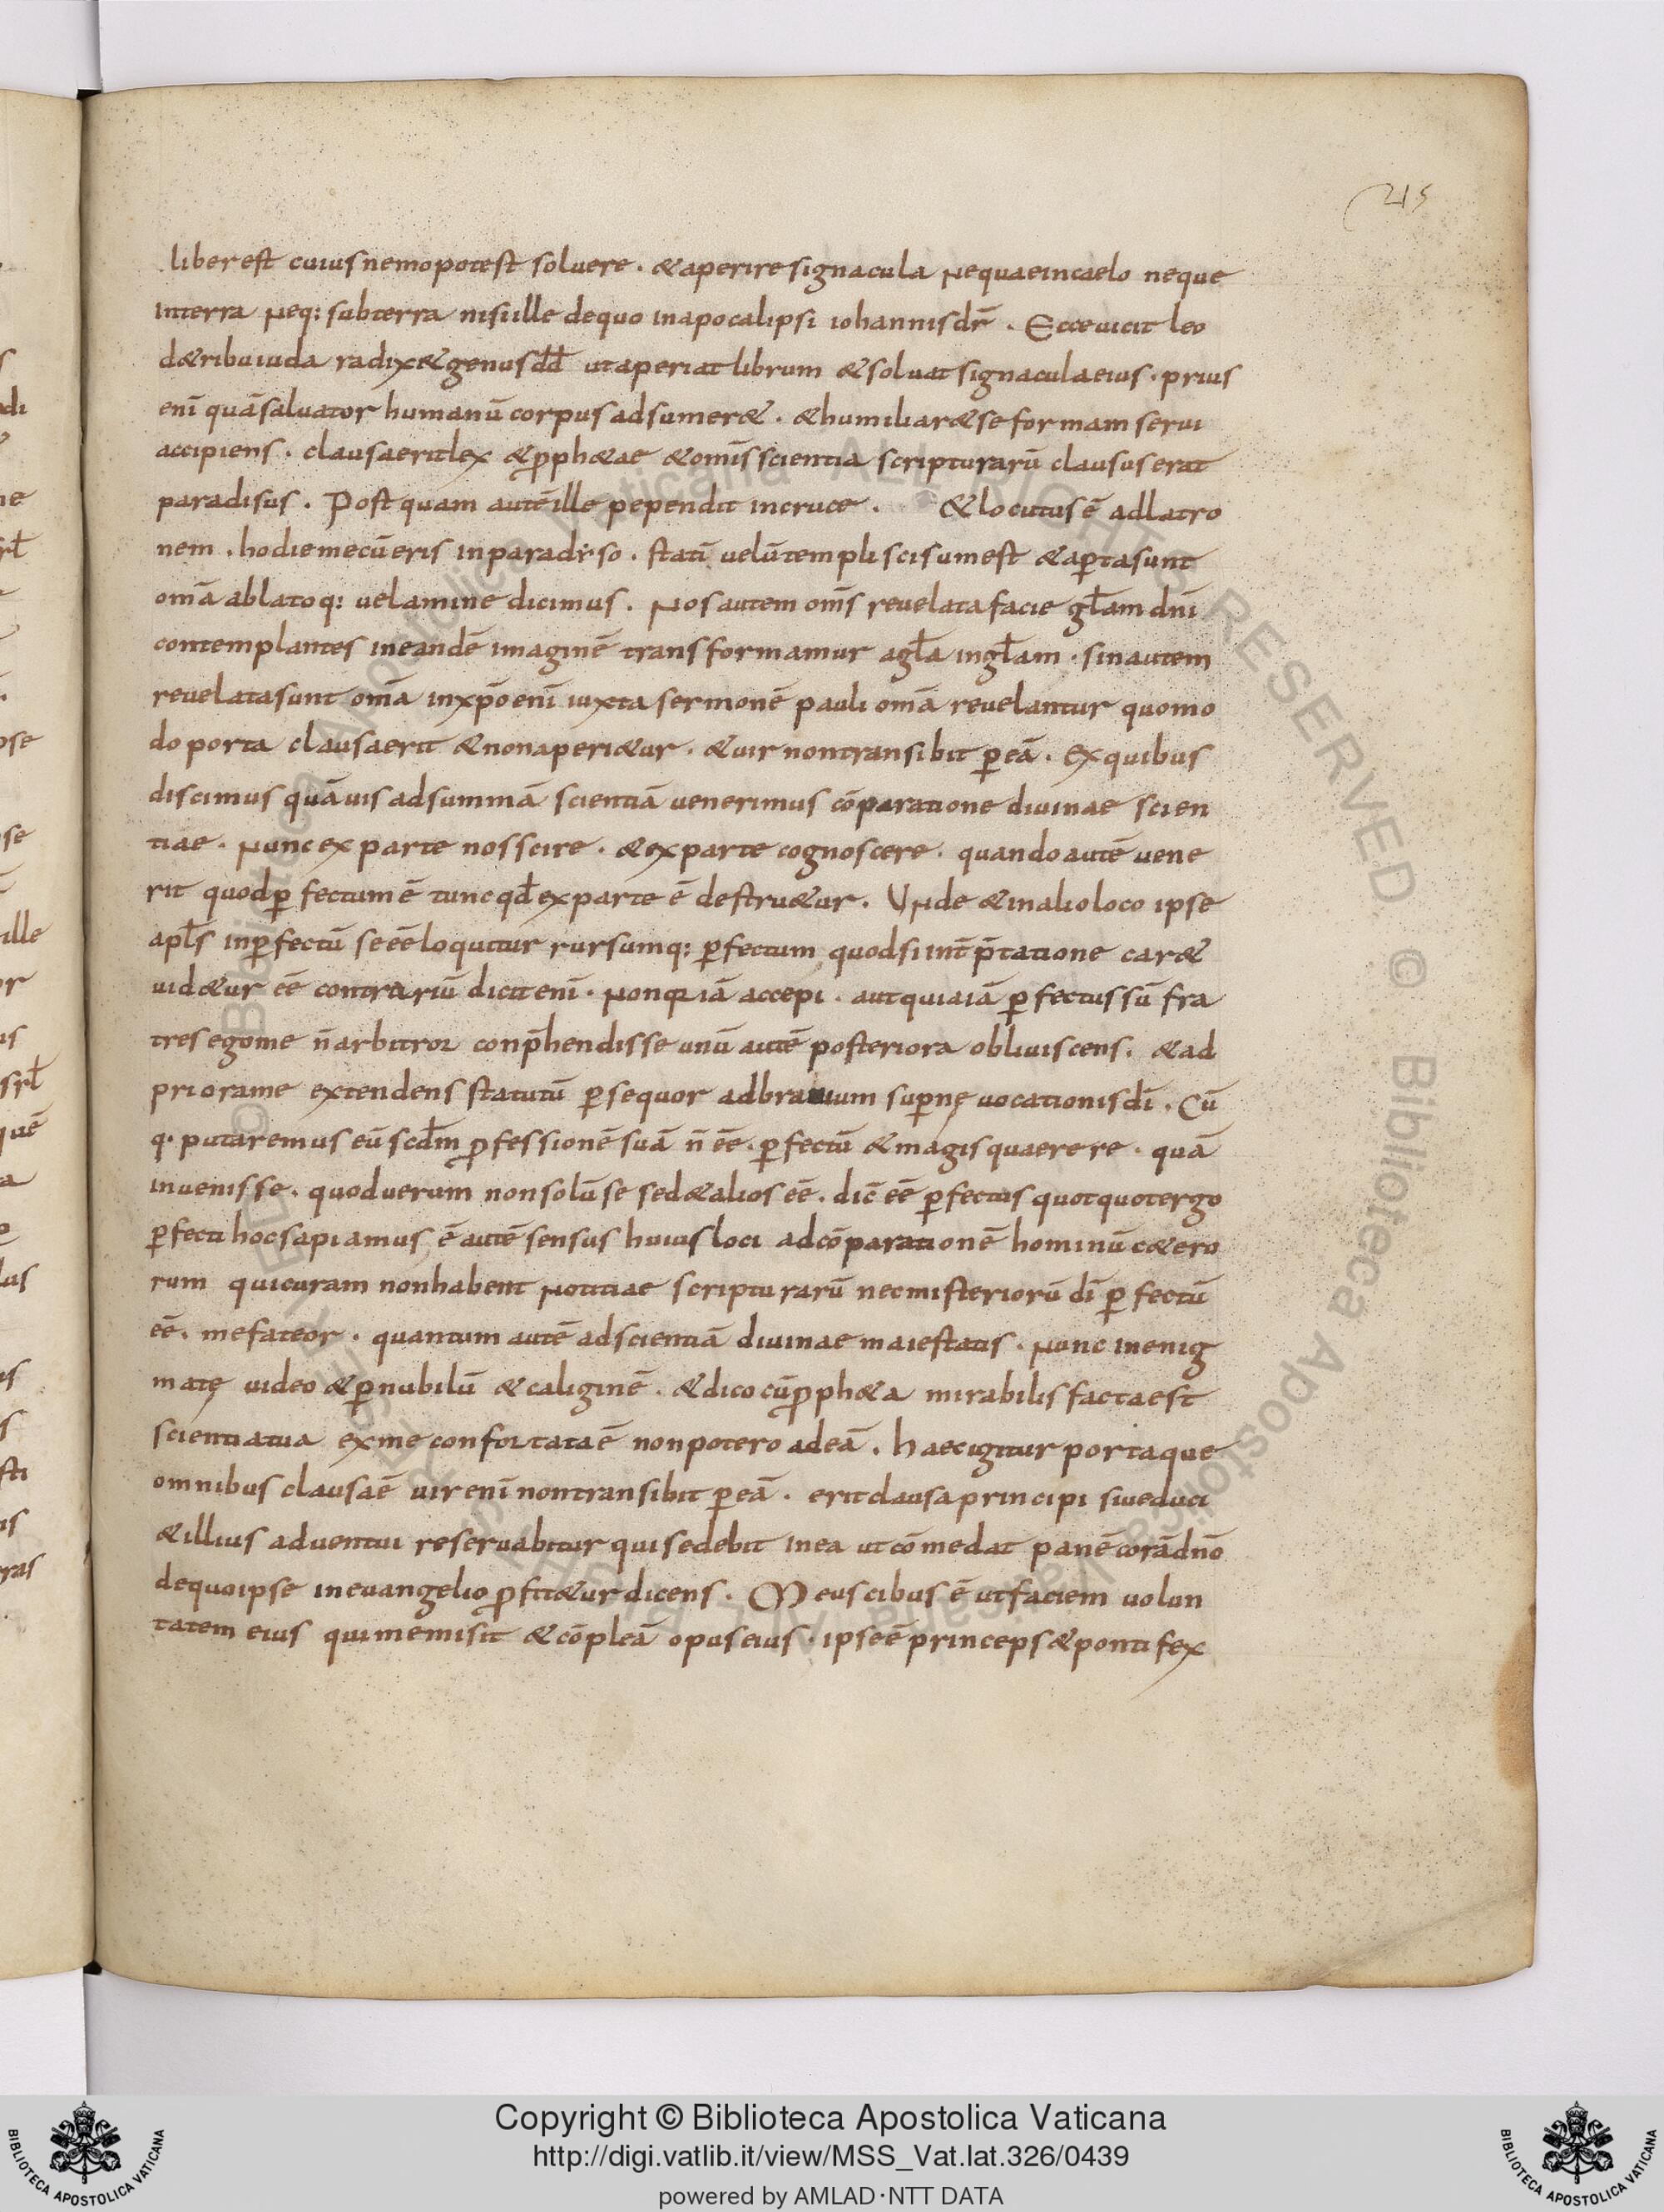 215
liber est cuius nemo potest soluere · & aperire signacula Neque in caelo neque
in terra Neq: sub terra nisi ille de quo in apocalipsi iohannis dr̄ · Ecce uicit leo
d&ribu iuda radix & genus dd̄ ut aperiat librum & soluat signacula eius · prius
enī quā saluator humanū corpus adsumer& · & humiliar& se formam serui
accipiens · clausa erit lex & ꝓph&ae & om̄is scientia scripturarū clausus erat
paradisus . Post quam autē ille pependit in cruce . & locutus ē ad latro
nem . hodie mecū eris in paradiso . statī uelū templi scisum est & aꝑta sunt
om̄a ablatoq: uelamine dicimus . Nos autem om̄s reuelata facie gl̄am dn̄i
contemplantes in eandē imaginē transformamur a gl̄a in gl̄am · sin autem
reuelata sunt om̄a in xp̄o enī iuxta sermonē pauli om̄a reuelantur quomo
do porta clausa erit & non aperi&ur · & uir non transibit ꝑ eā . Ex quibus
discimus quāuis ad summā scientiā uenerimus cōparatione diuinae scien
tiae · Nunc ex parte nos scire · & ex parte cognoscere · quando autē uene
rit quod ꝑfectum ē tunc qd̄ ex parte ē destru&ur . Unde & in alio loco ipse
apl̄s inꝑfectū se eē loquitur rursumq: ꝑfectum quod si int̄p̄tatione car&
uid&ur eē contrariū dicit enī · Non q̇ iā accepi · aut quia iā ꝑfectus sū fra
tres ego me n̄ arbitror conp̄hendisse unū autē posteriora obliuiscens . & ad
priora me extendens statutū ꝑsequor ad brauium suꝑnę uocationis dī . Cū
q· putaremus eū scd̄m ꝓfessionē suā n̄ eē · ꝑfectū & magis quaerere · quā
inuenisse · quod uerum non solū se sed & alios eē . dic̄ eē ꝑfectus quotquot ergo
ꝑfecti hoc sapiamus ē autē sensus huius loci ad cōparationē hominū c&ero
rum qui curam non habent Notitiae scripturarū nec misteriorū dī ꝑfectū
eē . me fateor · quantum autē ad scientiā diuinae maiestatis · Nunc in enig
matę uideo & ꝑ nubilū & caliginē . & dico cū ꝓph&a mirabilis facta est
scientia tua ex me confortata ē non potero ad eā . haec igitur porta que
omnibus clausa ē uir enī non transibit ꝑ eā . erit clausa principi siue duci
& illius aduentui reseruabitur qui sedebit in ea ut cōmedat panē corā dn̄o
de quo ipse in euangelio ꝓfit&ur dicens . Meus cibus ē ut faciem uolun
tatem eius qui me misit & cōpleā opus eius · ipse ē princeps & pontifex
Copyright © Biblioteca Apostolica Vaticana
http://digi.vatlib.it/view/MSS_Vat.lat.326/0439
powered by AMLAD·NTT DATA
BIBLIOTECA APOSTOLICA VATICANA
BIBLIOTECA APOSTOLICA VATICANA